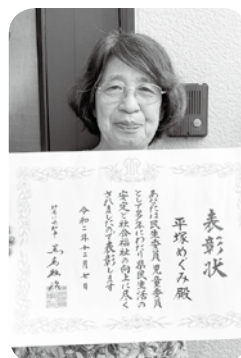 表彰状
平塚めぐみ殿
あなたは民生委員児童委員
として多年にわたり県民生活の
安定と社会福祉の向上に尽く
されましたので表彰します
令和二年十二月七日